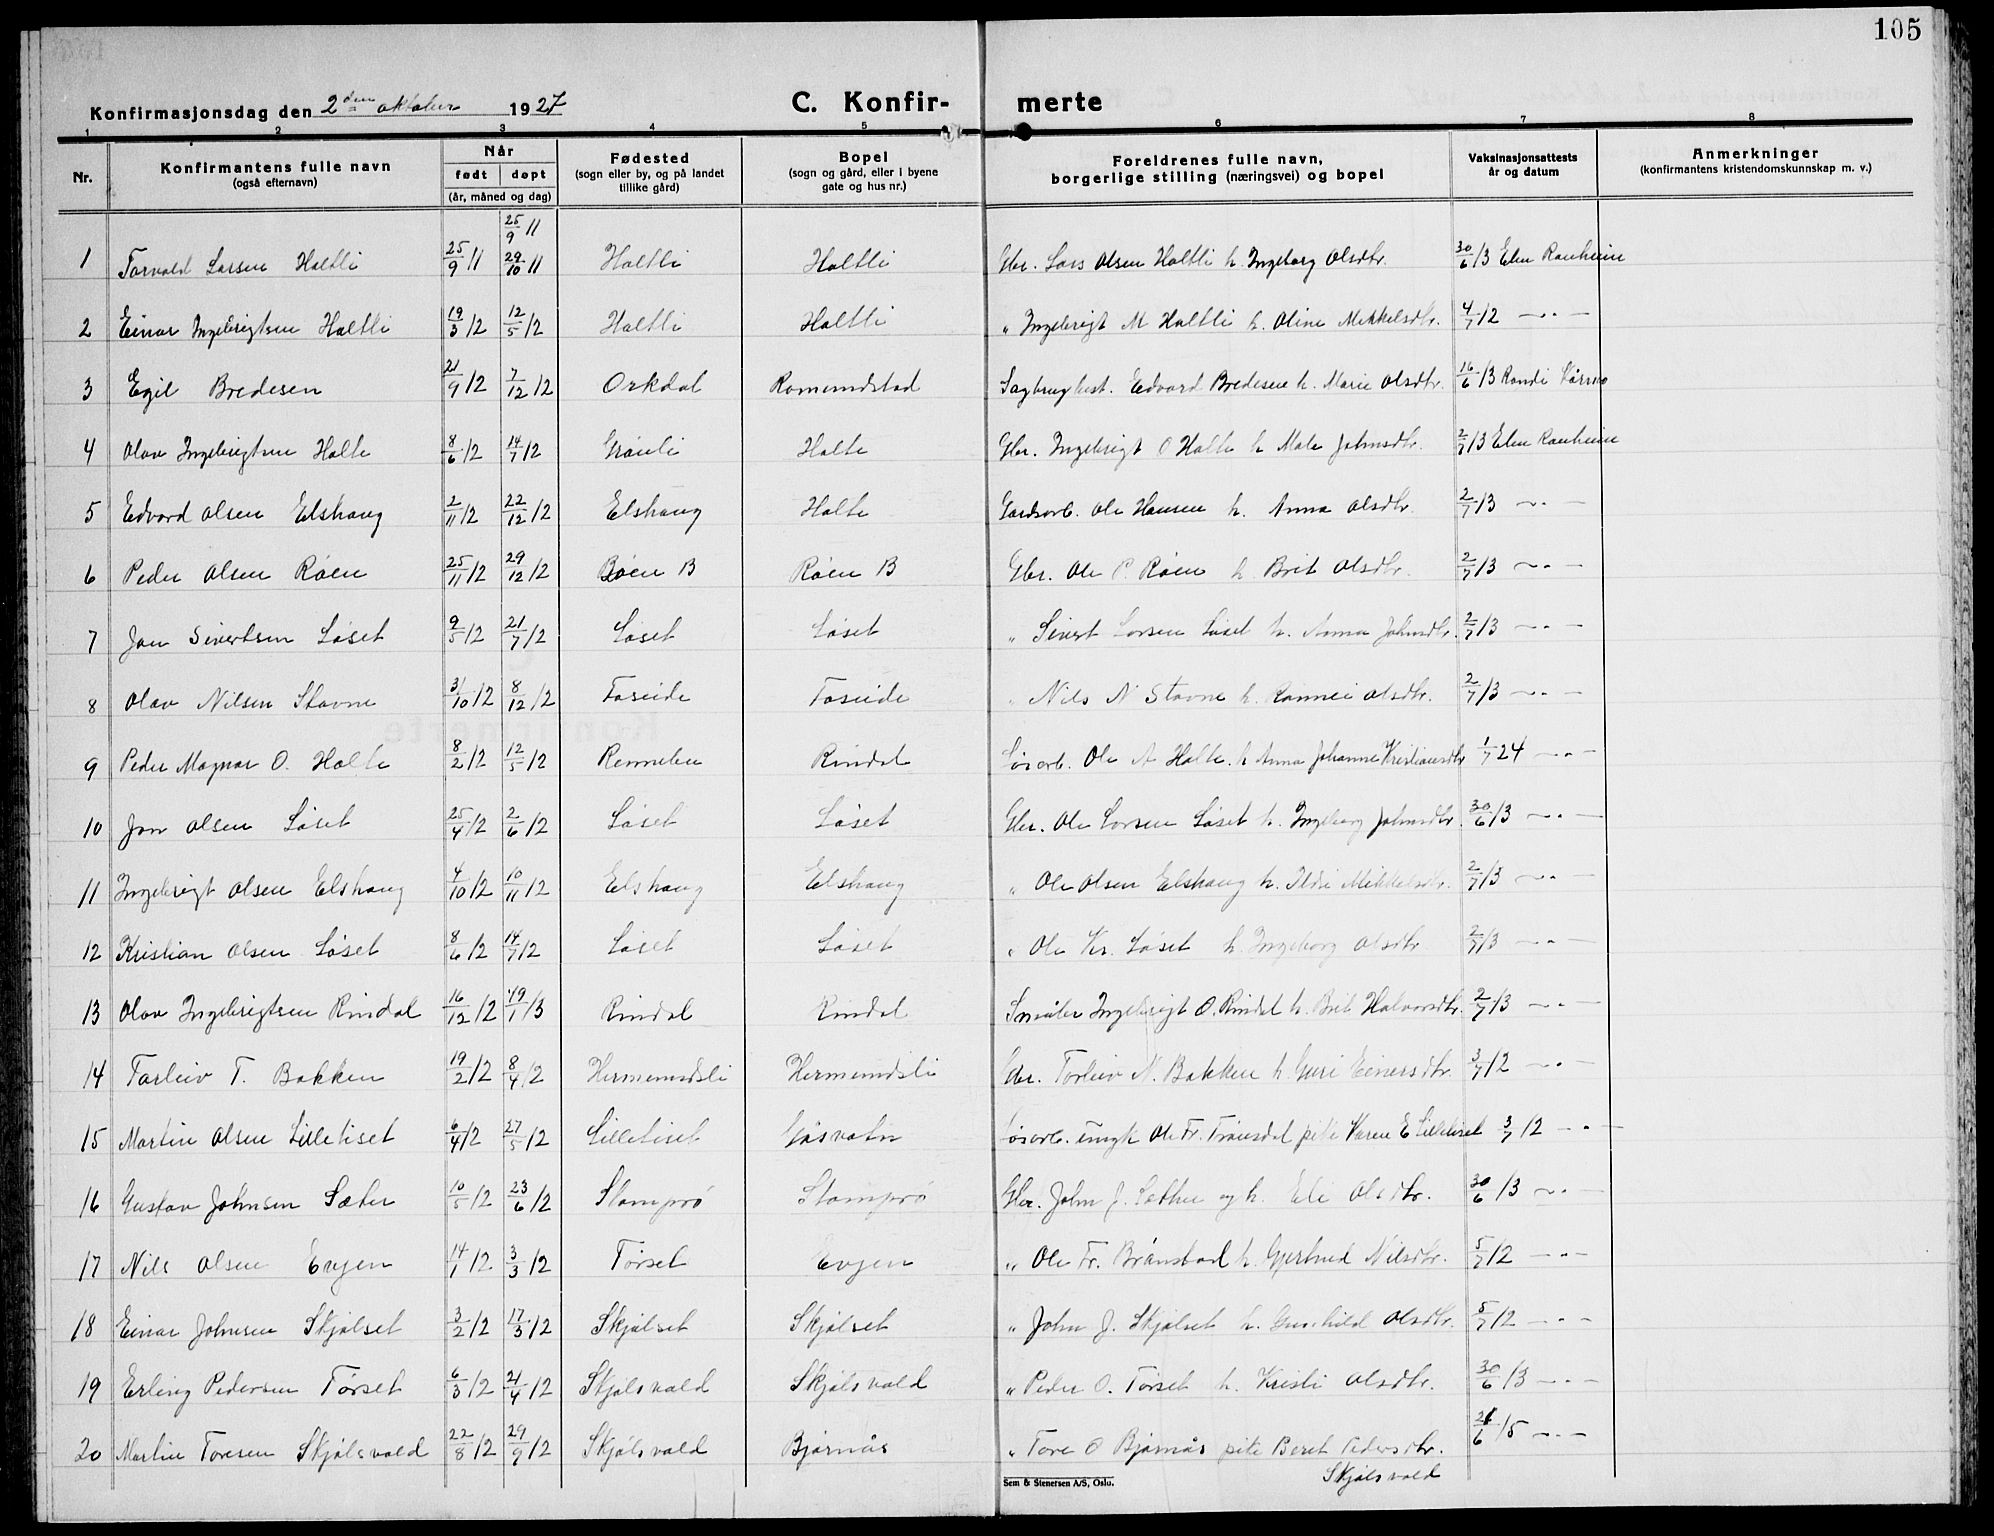 105
Konfirmasjonsdag den 2den oktober 1927 C. Konfir- merte
1 2 3 4 5 6 7 8
Nr. Konfirmantens fulle navn (også efternavn) Når født døpt (år, måned og dag) Fødested (sogn eller by, og på landet tillike gård) Bopel (sogn og gård, eller i byene gate og hus nr.) Foreldrenes fulle navn, borgerlige stilling (næringsvei) og bopel Vaksinasjonsattests år og datum Anmerkninger (konfirmantens kristendomskunnskap m. v.)
25/9 11
1 Torvald Larsen Holtli 25/9 11 29/10 11 Holtli Holtli Gbr. Lars Olsen Holtli h. Ingeborg Olsdtr. 30/6 13 Elen Ranheim
2 Einar Ingebrigtsen Holtli 19/3 12 12/5 12 Holtli Holtli " Ingebrigt M Holtli h. Oline Mikkelsdtr. 4/7 12 —"—
3 Egil Bredesen 21/9 12 7/12 12 Orkdal Romundstad Sagbrugbest. Edvard Bredesen h. Marie Olsdtr. 16/6 13 Randi Kårmo
4 Olav Ingebrigtsen Holte 8/6 12 14/7 12 Grønli Holte Gbr. Ingebrigt O Holte h Mali Johnsdtr. 2/7 13 Elen Ranheim
5 Edvard Olsen Elshaug 2/11 12 22/12 12 Elshaug Holte Gardsarb. Ole Hansen h. Anna Olsdtr. 2/7 13 —"—
6 Peder Olsen Røen 25/11 12 29/12 12 Røen B Røen B Gbr. Ole P. Røen h. Brit Olsdtr. 2/7 13 —"—
7 Jon Sivertsen Løset 9/5 12 21/7 12 Løset Løset " Sivert Larsen Løset h. Anna Johnsdtr. 2/7 13 —"—
8 Olav Nilsen Stavne 31/10 12 8/12 12 Foseide Foseide " Nils N Stavne h. Rønnei Olsdtr. 2/7 13 —"—
9 Peder Magnar O. Holte 8/2 12 12/5 12 Rennelen Rindal Løsarb. Ole A Holte h Anna Johanne Kristiansdtr 1/7 24 —"—
10 Jon Olsen Løset 25/4 12 2/6 12 Løset Løset Gbr. Ole Larsen Løset h. Ingeborg Johnsdtr. 30/6 13 —"—
11 Ingebrigt Olsen Elshaug 4/10 12 10/11 12 Elshaug Elshaug " Ole Olsen Elshaug h. Ildri Mikkelsdtr. 2/7 13 —"—
12 Kristian Olsen Løset 8/6 12 14/7 12 Løset Løset " Ole Kr. Løset h. Ingeborg Olsdtr. 2/7 13 —"—
13 Olav Ingebrigtsen Rindal 16/12 12 19/1 13 Rindal Rindal Småbr Ingebrigt O. Rindal h. Brit Halvorsdtr. 2/7 13 —"—
14 Torleiv T. Bakken 19/2 12 8/4 12 Hermundsli Hermundsli Gbr. Torleiv N. Bakken h. Guri Einersdtr. 3/7 12 —"—
15 Martin Olsen Lilletiset 6/4 12 27/5 12 Lilletiset Gåsvatn Løsarb. ungk Ole Fr. Trønsdal pike Karen E Lilletiset 3/7 12 —"—
16 Gustav Johnsen Sæter 10/5 12 23/6 12 Stomprø Stomprø Gbr. John J. Sæther og h. Eli Olsdtr. 30/6 13 —"—
17 Nils Olsen Evjen 14/1 12 3/3 12 Tørset Evjen " Ole Fr. Brønstad h. Gjertrud Nilsdtr. 5/7 12 —"—
18 Einar Johnsen Skjølset 3/2 12 17/3 12 Skjølset Skjølset " John J. Skjølset h. Gunhild Olsdtr. 5/7 12 —"—
19 Erling Pedersen Tørset 6/3 12 21/4 12 Skjølsvold Skjølsvold " Peder O. Tørset h. Kristi Olsdtr. 30/6 13 —"—
20 Martin Toresen Skjølsvold 22/8 12 29/9 12 Skjølsvold Bjørnås " Tore O Bjørnås pike Beret Pedersdtr. 21/6 15 —"—
Skjølsvold
Sem & Stenersen A/S, Oslo.